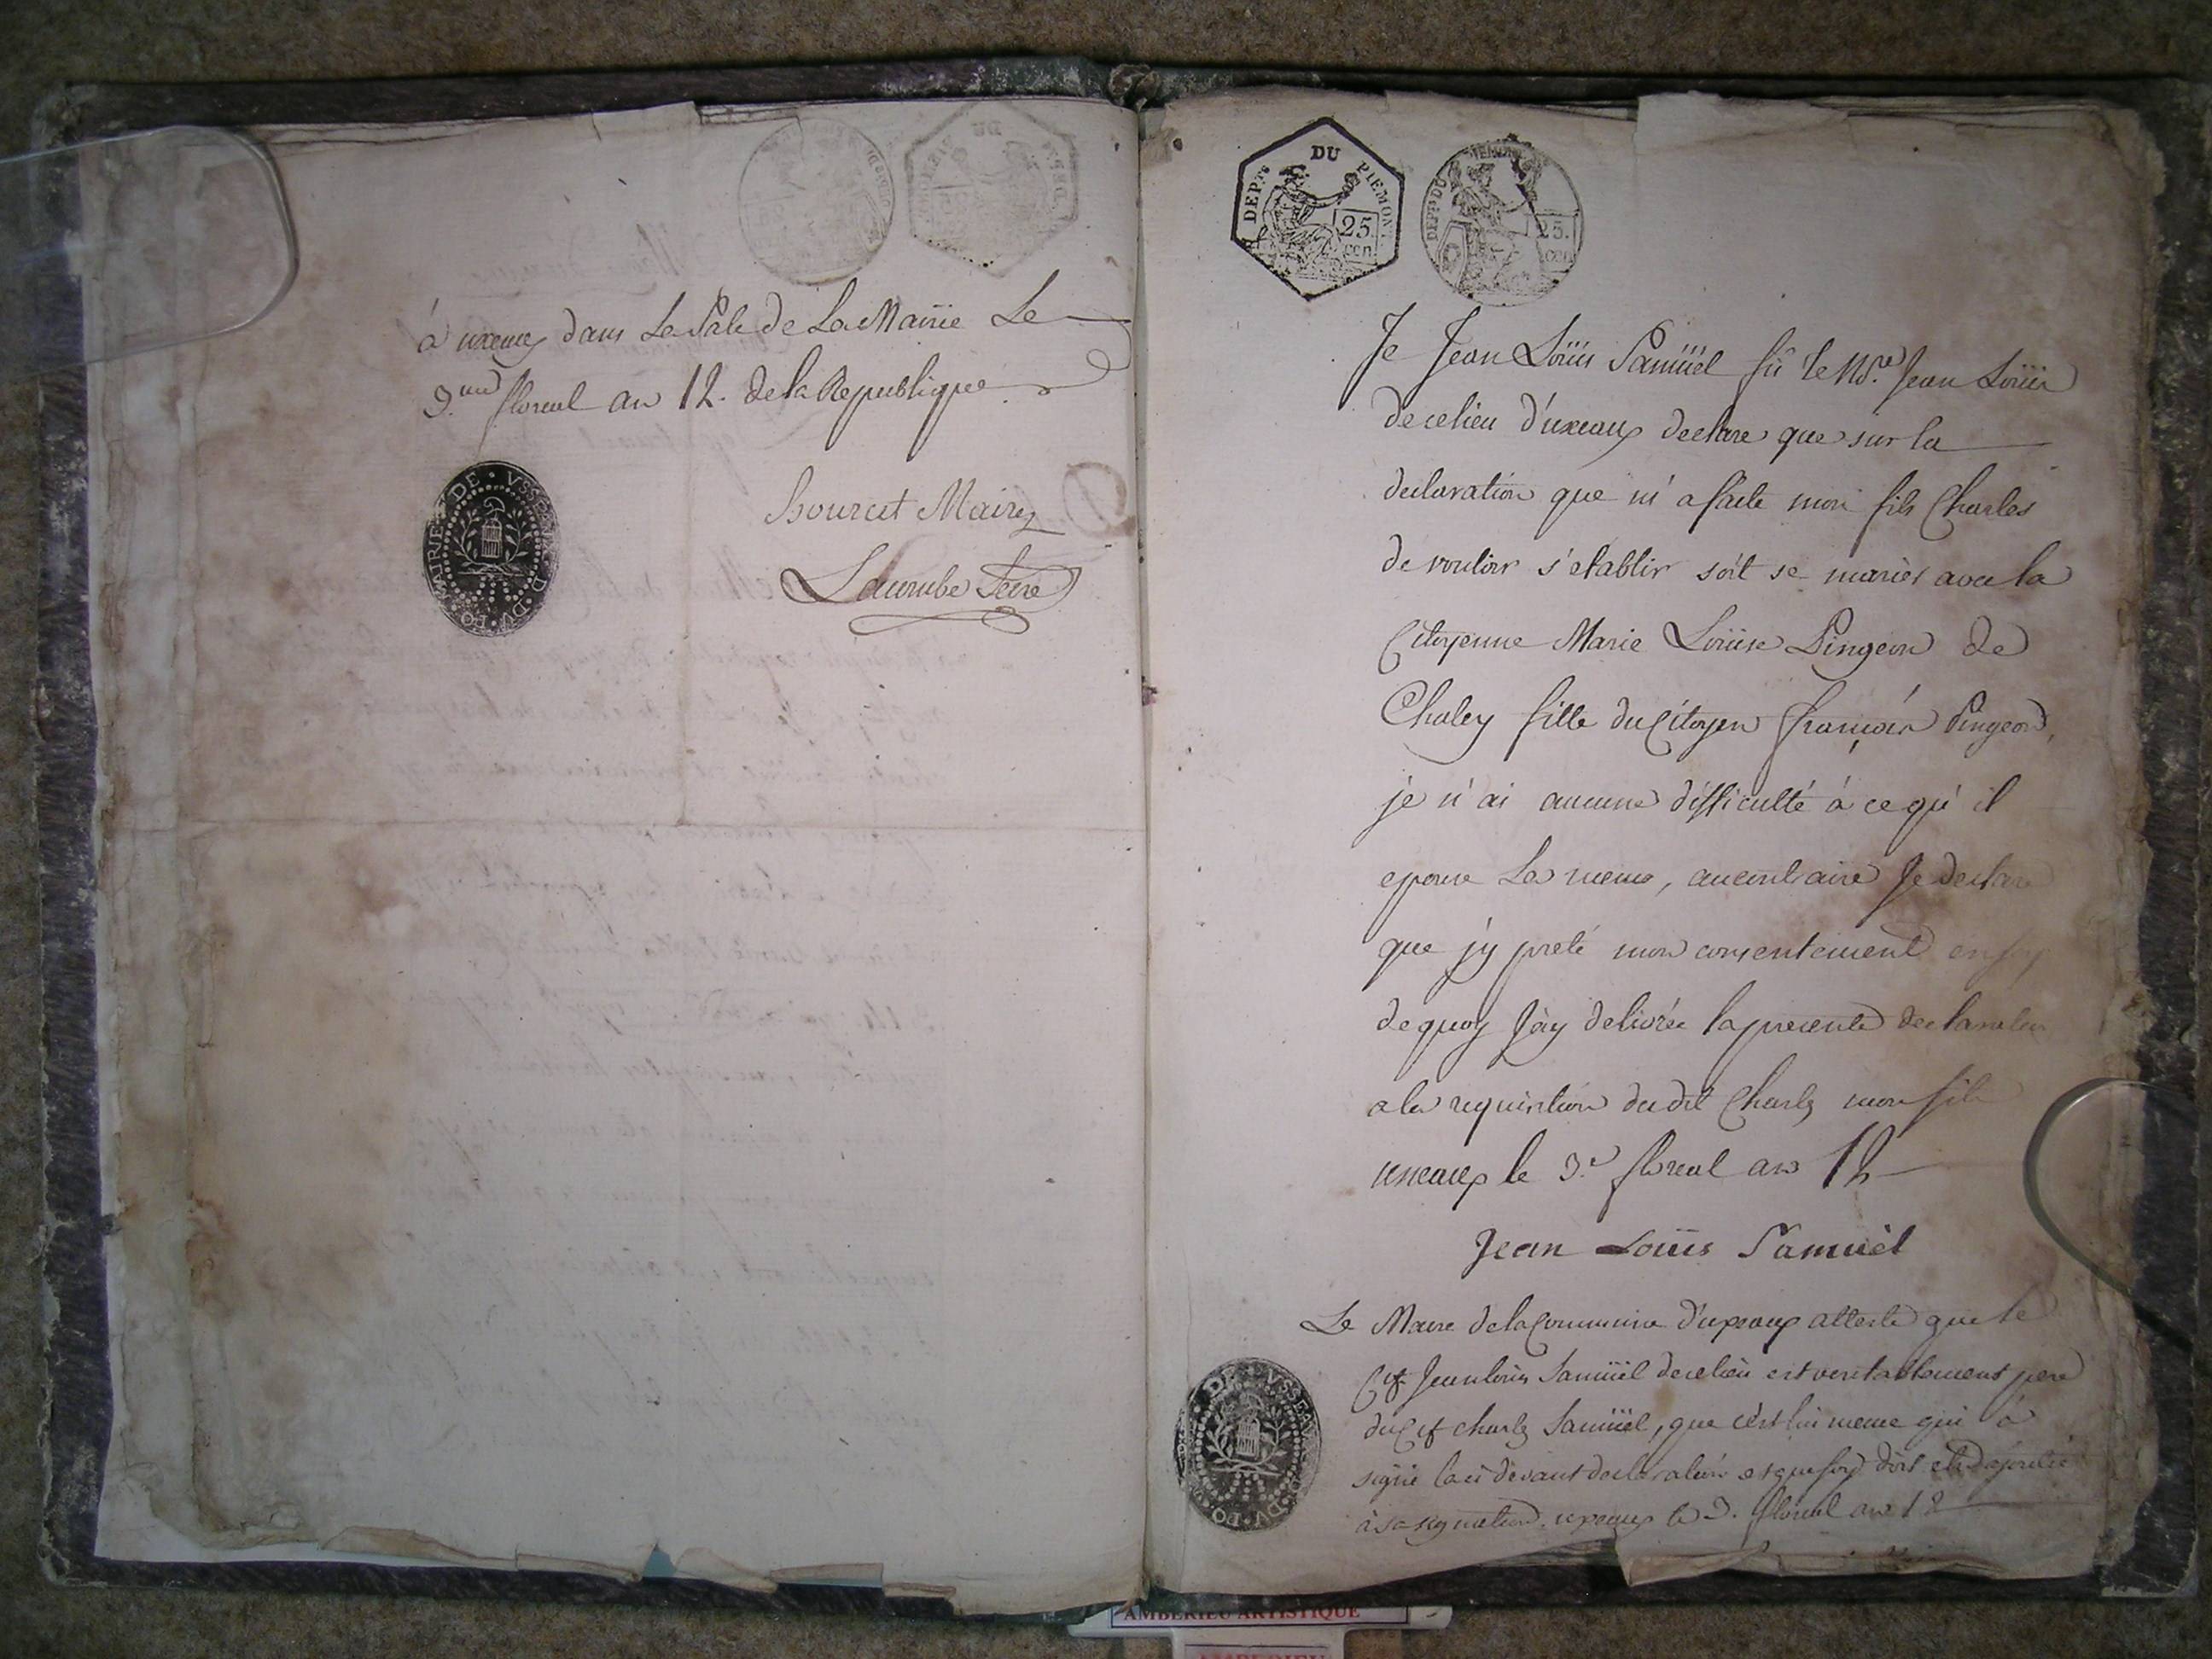 à uxeaux dans La Sale de La Mairie Le
3.me floreal an 12. de la Republique
Bourcet Maire
Lacombe Secre
MAIRIE DE USSEAU D. DU PO
DEPts DU PIEMONT
25. cen
DEPts DU
25. cen
Je Jean Loüis Samüel fû le Nore Jean Loüis
de ce lieu d'uxeaux declare que sur la
declaration que m'a faite mon fils Charles
de vouloir s'etablir soit se marier avec la
Citoyenne Marie Loüise Pingeon de
Chaley fille du Citoyen françois Pingeon,
je n'ai aucune difficulté à ce qu'il
epouse La meme, au contraire Je declare
que j'y prete mon consentement en foy
de quoy J'ay delivrée la presente declaration
a la requisition du dit Charles mon fils
usseaux le 3.e floreal an 12
Jean Loüis Samuel
Le Maire de la Commune d'uxeaux atteste que le
Cit Jean loüis Samüel de ce lieu est veritablement pere
du Cit charles Samüel, que c'est lui meme qui a
signé la ci devant declaration et que foy doit etre ajoutée
à sa signature. uxeaux le 3. floreal an 12
MAIRIE DE USSEAU D. DU PO
AMBERIEU ARTISTIQUE
AMBERIEU